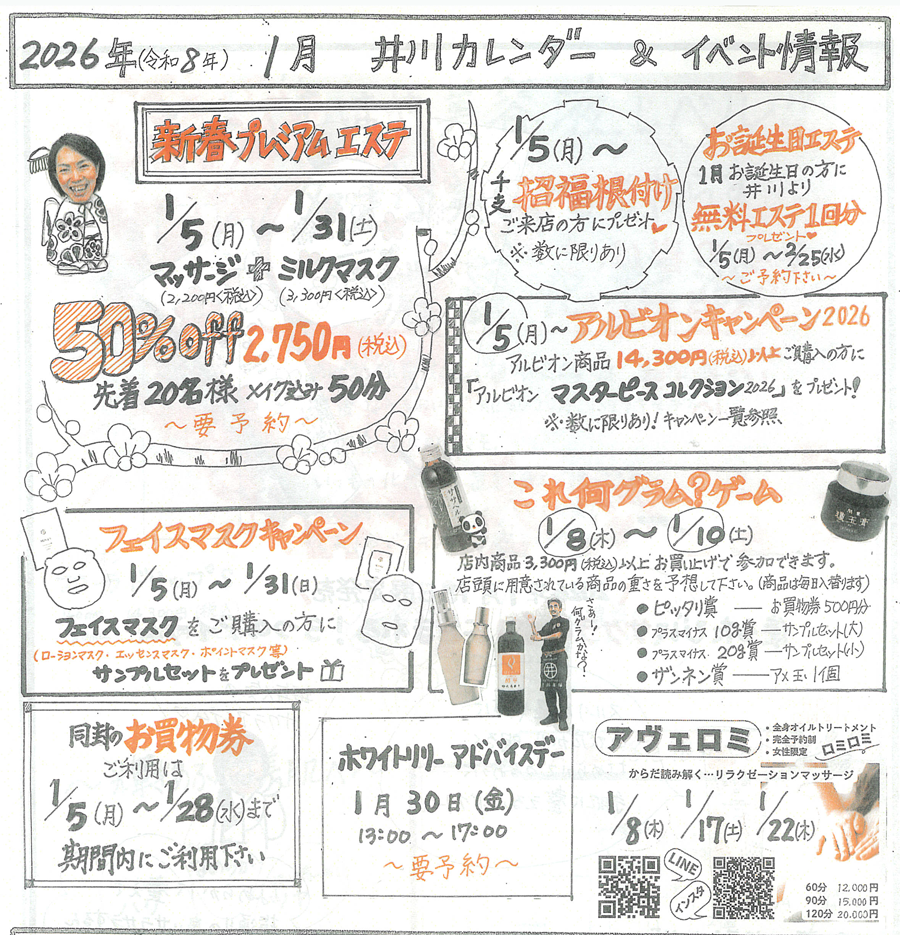 2026年(令和8年) 1月 井川カレンダー & イベント情報
新春プレミアムエステ
1/5(月)～1/31(土)
マッサージ + ミルクマスク
(2,200円<税込>) (3,300円<税込>)
50%off 2,750円(税込)
先着20名様 メイク込み50分
～要予約～
1/5(月)～
干支 招福根付け
ご来店の方にプレゼント
※数に限りあり
お誕生日エステ
1月お誕生日の方に
井川より
無料エステ1回分
プレゼント
1/5(月)～2/25(水)
～ご予約下さい～
1/5(月)～アルビオンキャンペーン2026
アルビオン商品14,300円(税込)以上ご購入の方に
「アルビオン マスターピース コレクション2026」をプレゼント!
※数に限りあり!キャンペーン一覧参照
フェイスマスクキャンペーン
1/5(月)～1/31(日)
フェイスマスクをご購入の方に
(ローションマスク・エッセンスマスク・ポイントマスク等)
サンプルセットをプレゼント
これ何グラム?ゲーム
1/8(木)～1/10(土)
店内商品3,300円(税込)以上お買い上げで参加できます。
店頭に用意されている商品の重さを予想して下さい。(商品は毎日入替ります)
さぁー!
何グラムかな?
●ピッタリ賞 ― お買物券500円分
●プラスマイナス10g賞 ― サンプルセット(大)
●プラスマイナス20g賞 ― サンプルセット(小)
●ザンネン賞 ― アメ玉1個
同封のお買物券
ご利用は
1/5(月)～1/28(水)まで
期間内にご利用下さい
ホワイトリリー アドバイスデー
1月30日(金)
13:00～17:00
～要予約～
アヴェロミ
・全身オイルトリートメント
・完全予約制
・女性限定
ロミロミ
からだ読み解く…リラクゼーションマッサージ
1/8(木) 1/17(土) 1/22(木)
LINE
インスタ
60分 12,000円
90分 15,000円
120分 20,000円